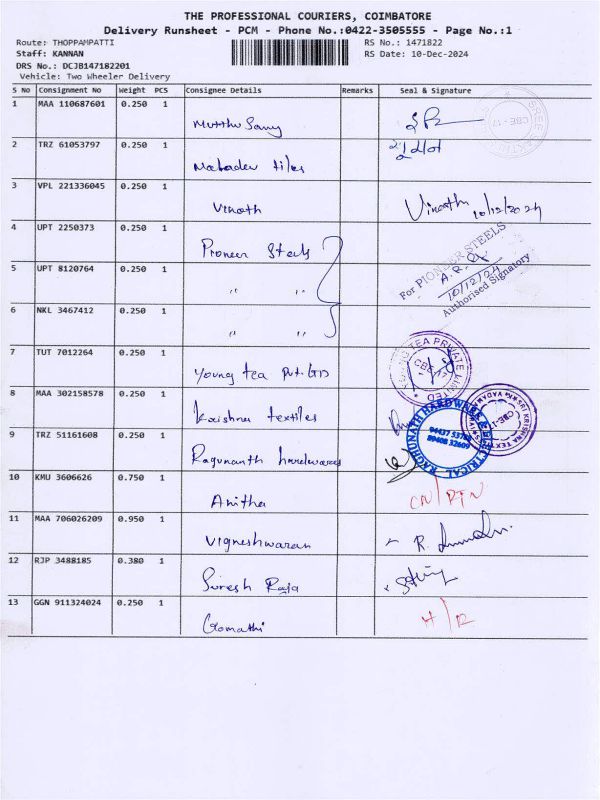 THE PROFESSIONAL COURIERS, COIMBATORE
Delivery Runsheet - PCM - Phone No.:0422-3505555 - Page No.:1
Route: THOPPAMPATTI RS No.: 1471822
Staff: KANNAN RS Date: 10-Dec-2024
DRS No.: DCJB147182201
Vehicle: Two Wheeler Delivery
S No Consignment No Weight PCS Consignee Details Remarks Seal & Signature
1 MAA 110687601 0.250 1
Muthu Samy
2 TRZ 61053797 0.250 1
Mahadev tiles
3 VPL 221336045 0.250 1
Vinoth Vinoth 10/12/2024
4 UPT 2250373 0.250 1
Pioneer Steels
5 UPT 8120764 0.250 1
" "
For PIONEER STEELS
10/12/24
Authorised Signatory
6 NKL 3467412 0.250 1
" "
7 TUT 7012264 0.250 1
Young tea Pvt. LTD
YOUNG TEA PRIVATE LIMITED
CBE-17
8 MAA 302158578 0.250 1
Krishna textiles
SRI KRISHNA TEX
9 TRZ 51161608 0.250 1
Ragunanth hardwares
RAGHUNATH HARDWARE & ELECTRICAL
10 KMU 3606626 0.750 1
Anitha
11 MAA 706026209 0.950 1
Vigneshwaran
12 RJP 3488185 0.380 1
Suresh Raja
13 GGN 911324024 0.250 1
Gomathi